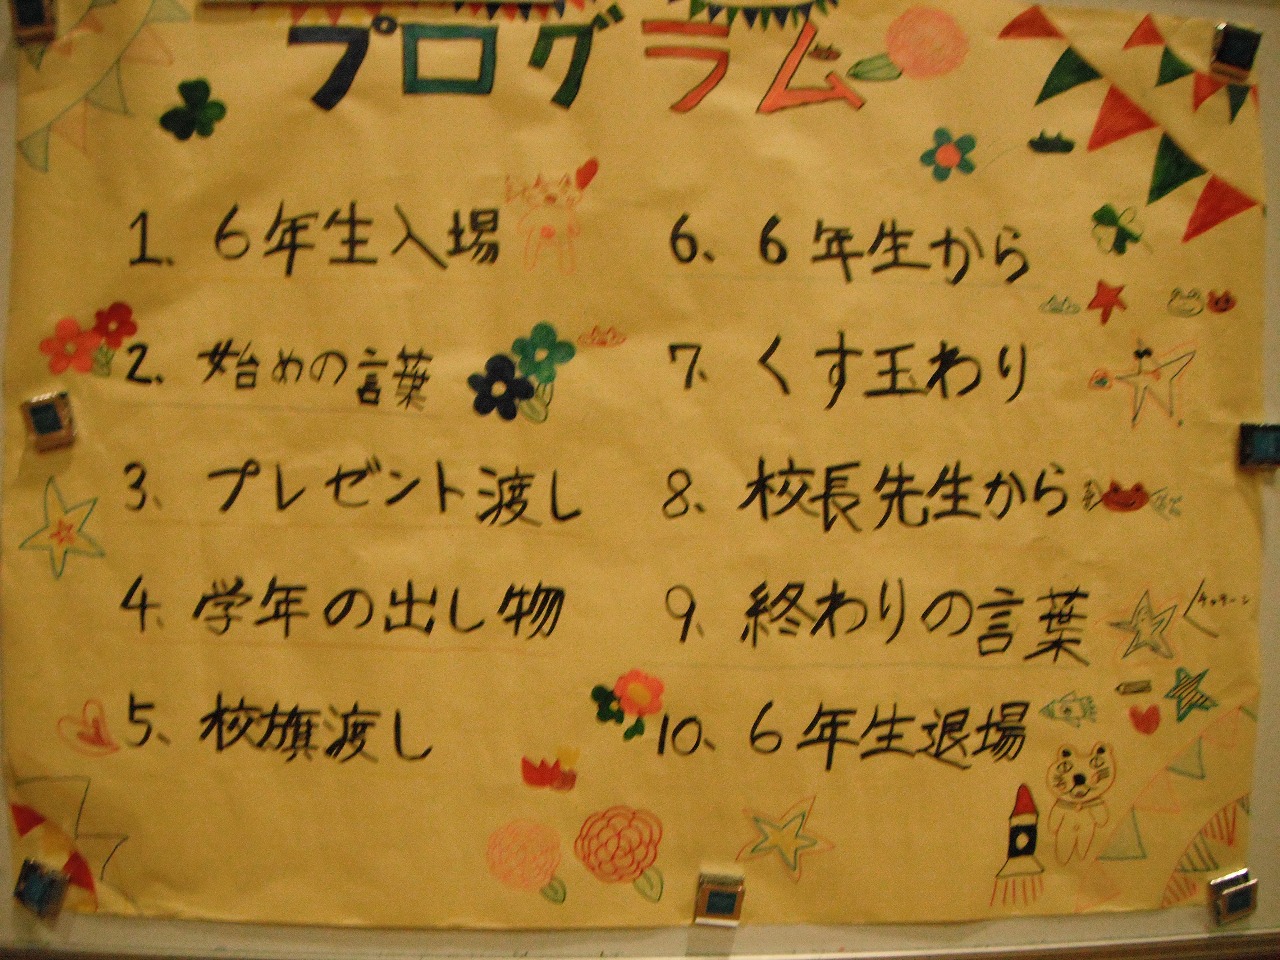 プログラム
1. 6年生入場
2. 始めの言葉
3. プレゼント渡し
4. 学年の出し物
5、校旗渡し
6、6年生から
7. くす玉わり
8、校長先生から
9、終わりの言葉
10、6年生退場